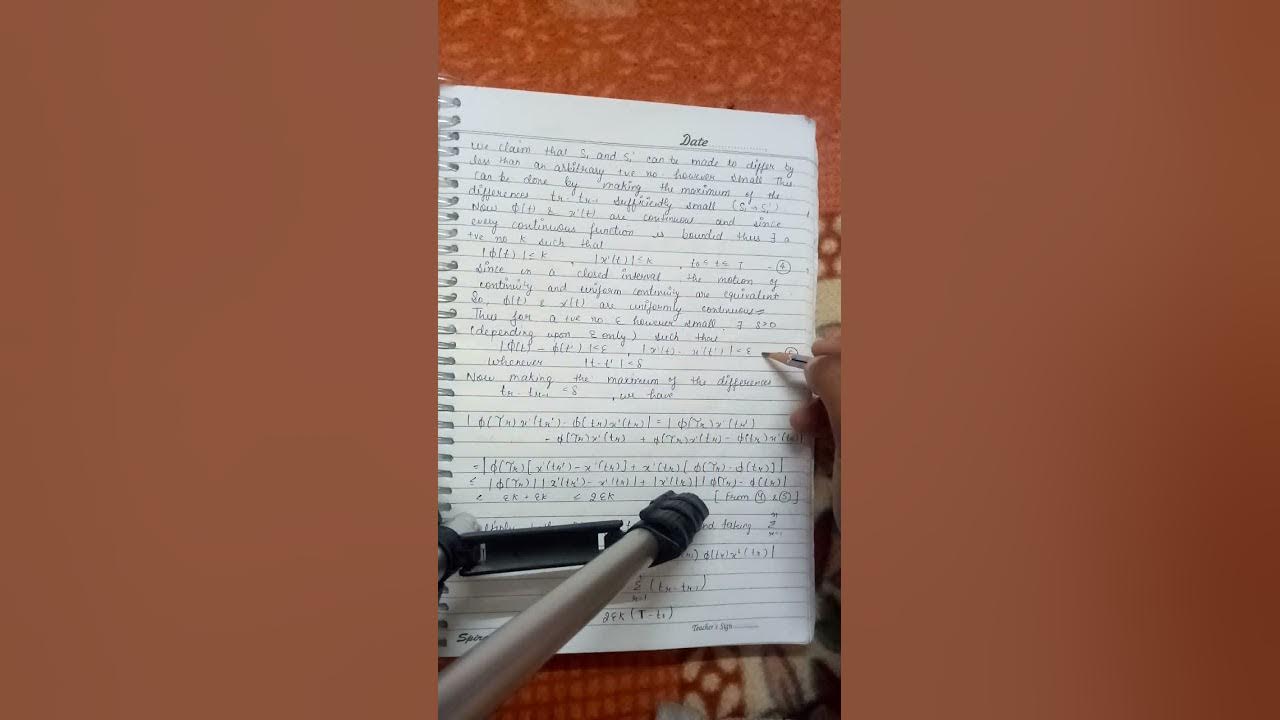 Date
We claim that S₁ and S₁' can be made to differ by
less than an arbitrary +ve no. however small This
can be done by making the maximum of the
differences tr - tr-1 sufficiently small (S₁ → S₁')
Now ϕ(t) & x'(t) are continuous and since
every continuous function is bounded thus ∃ a
+ve no K such that
|ϕ(t)| ≤ K |x'(t)| ≤ K , t₀ ≤ t ≤ T - ④
since in a closed interval the motion of
continuity and uniform continuity are equivalent
So, ϕ(t) & x'(t) are uniformly continuous
Thus for a +ve no ε however small ∃ δ>0
(depending upon ε only) such that
|ϕ(t) - ϕ(t')| < ε , |x'(t) - x'(t')| < ε
Whenever |t-t'| < δ
Now making the maximum of the differences
tr - tr-1 < δ , we have
|ϕ(τr)x'(tr') - ϕ(tr)x'(tr)| = |ϕ(τr)x'(tr')
- ϕ(τr)x'(tr) + ϕ(τr)x'(tr) - ϕ(tr)x'(tr)|
= |ϕ(τr)[x'(tr') - x'(tr)] + x'(tr)[ϕ(τr) - ϕ(tr)]|
≤ |ϕ(τr)| |x'(tr') - x'(tr)| + |x'(tr)| |ϕ(τr) - ϕ(tr)|
< εK + εK < 2εK [From ④ & ⑤]
and taking Σ
ϕ(tr)x'(tr)|
Σ (tr - tr-1)
2εK(T-t₀)
Teacher's Sign
Spir